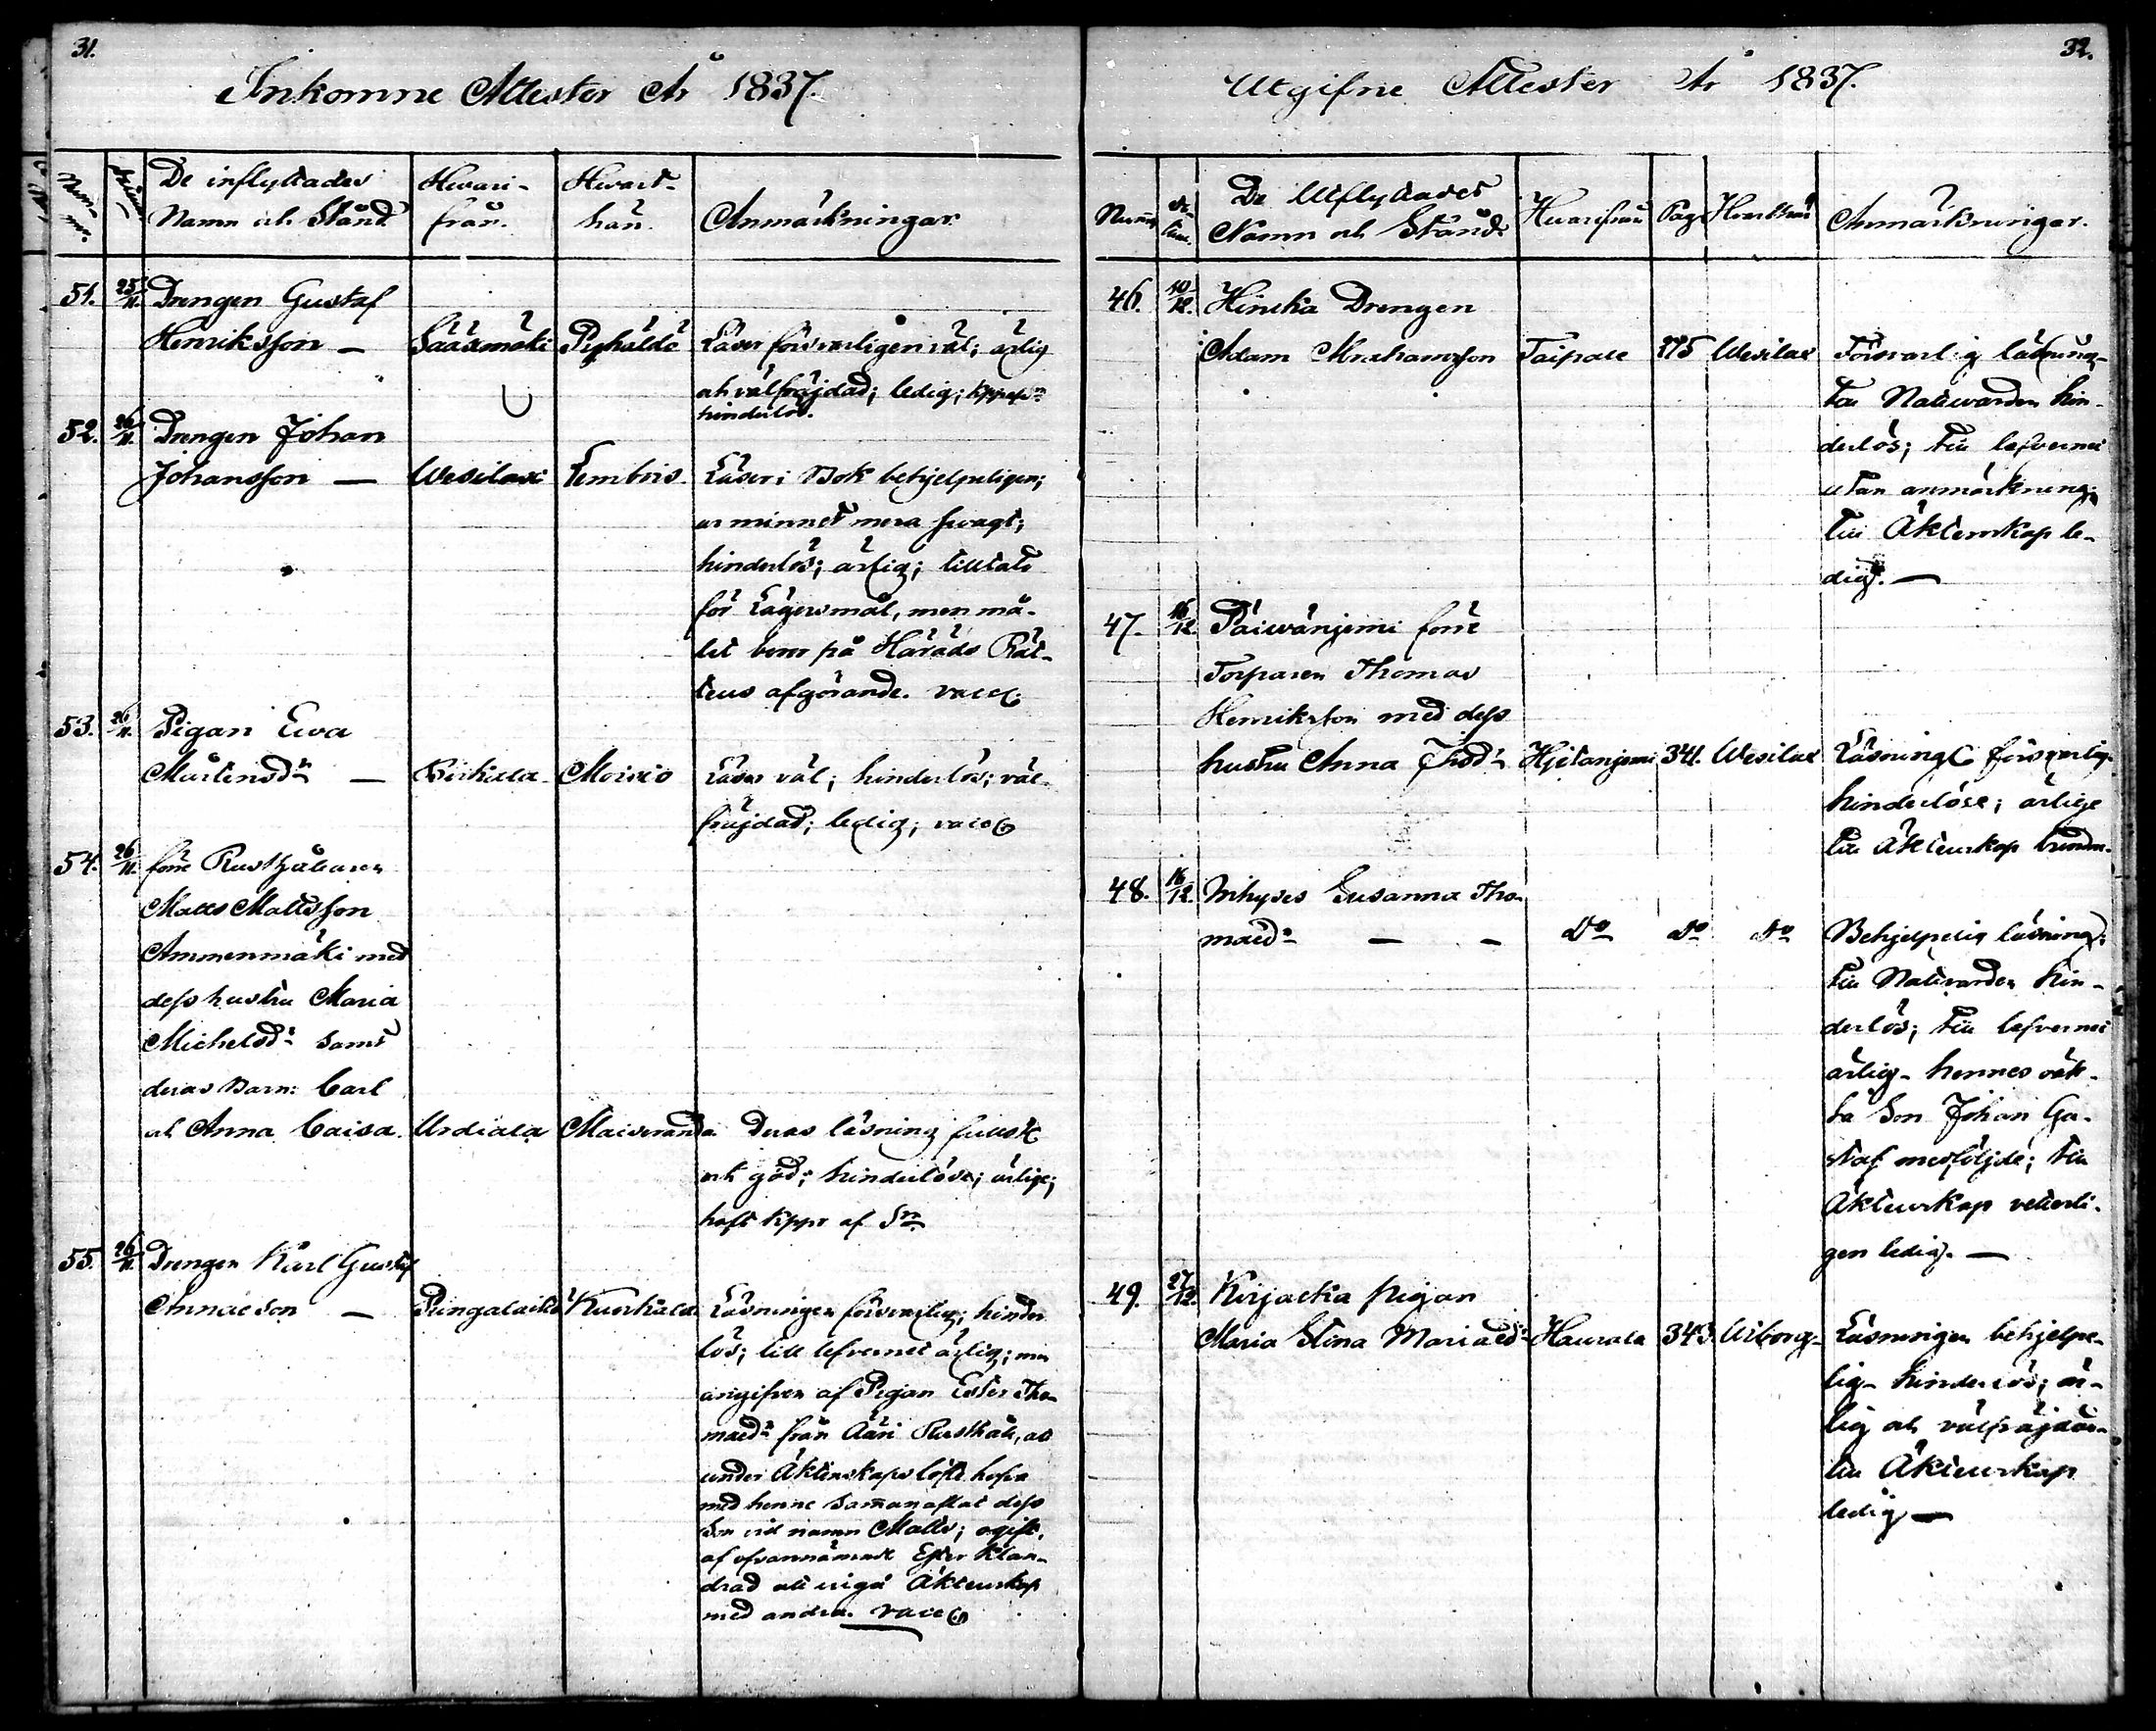 31.
Inkomne Attester År 1837.
Num-mr.
De inflyttades Namn och Stånd
Hvari-från.
Hvart-hän.
Anmärkningar.
51. 25/11. Drengen Gustaf
Henriksson — Sääxmäki Pyhäldö Läser försvarligen väl; ärlig
och välfräjdad; ledig;
hinderlös.
52. 26/11. Drengen Johan
Johansson — Wesilax Lembois Läser i Bok behjelpeligen;
ur minnet mera svagt;
hinderlös; ärlig; tilltald
för Lägersmål, men må-
let beror på Härads Rät-
tens afgörande. vacc.
53. 26/11. Pigan Ewa
Mårtensdr — Birkkala Moisio Läser väl; hinderlös; väl-
fräjdad; ledig; vacc.
54. 26/11. förre Rusthållaren
Matts Mattsson
Ammenmäki med
dess hustru Maria
Michelsdr samt
deras Barn: Carl
och Anna Caisa. Urdiala Deras läsning
och god; hinderlöse; ärlige;
haft kppr af Sn
55. 26/11. Drengen Karl Gustaf
Annaeson — Pungalaitio Läsningen försvarlig; hinder
lös; till lefvernet ärlig; men
angifven af Pigan Ester Tho-
maedr från Ääri Rusthåll, att
under Äktenskaps löfte hafva
med henne sam̄anaflat dess
Son vid namn Matts; ogift,
af ofvannämnde Ester klan-
drad att ingå Äktenskap
med andra. vacc.
32.
Utgifne Attester År 1837.
Num̄
De Utflyttades Namn och Stånd
Hvarifrån
Pag.
Hvarthän
Anmärkningar.
46. 10/12. Hincka Drengen
Adam Abrahamsson Taipale 175 Wesilax Försvarlig läsning-
till Nattvarden hin-
derlös; till lefvernet
utan anmärkning;
till Äktenskap le-
dig. —
47. 16/12. Päivänjemi förre
Torparen Thomas
Henriksson med dess
hustru Anna Hjetanjemi 341. Wesilax Läsning försvarlig.
hinderlöse; ärlige
till Äktenskap bundne.
48. 16/12. Inhyses Susanna Tho-
maedr — — Do Do Do Behjelpelig läsning;
till Nattvarden hin-
derlös; till lefvernet
ärlig - hennes oäk-
ta Son Johan Gu-
staf medföljde; till
Äktenskap vetterli-
gen ledig. —
49. 27/12. Kirjacka pigan
Maria Stina Mariaedr Haurala 343. Wiborg Läsningen behjelpe-
lig - hinderlös; är-
lig och välfräjdad-
till Äktenskap
ledig —